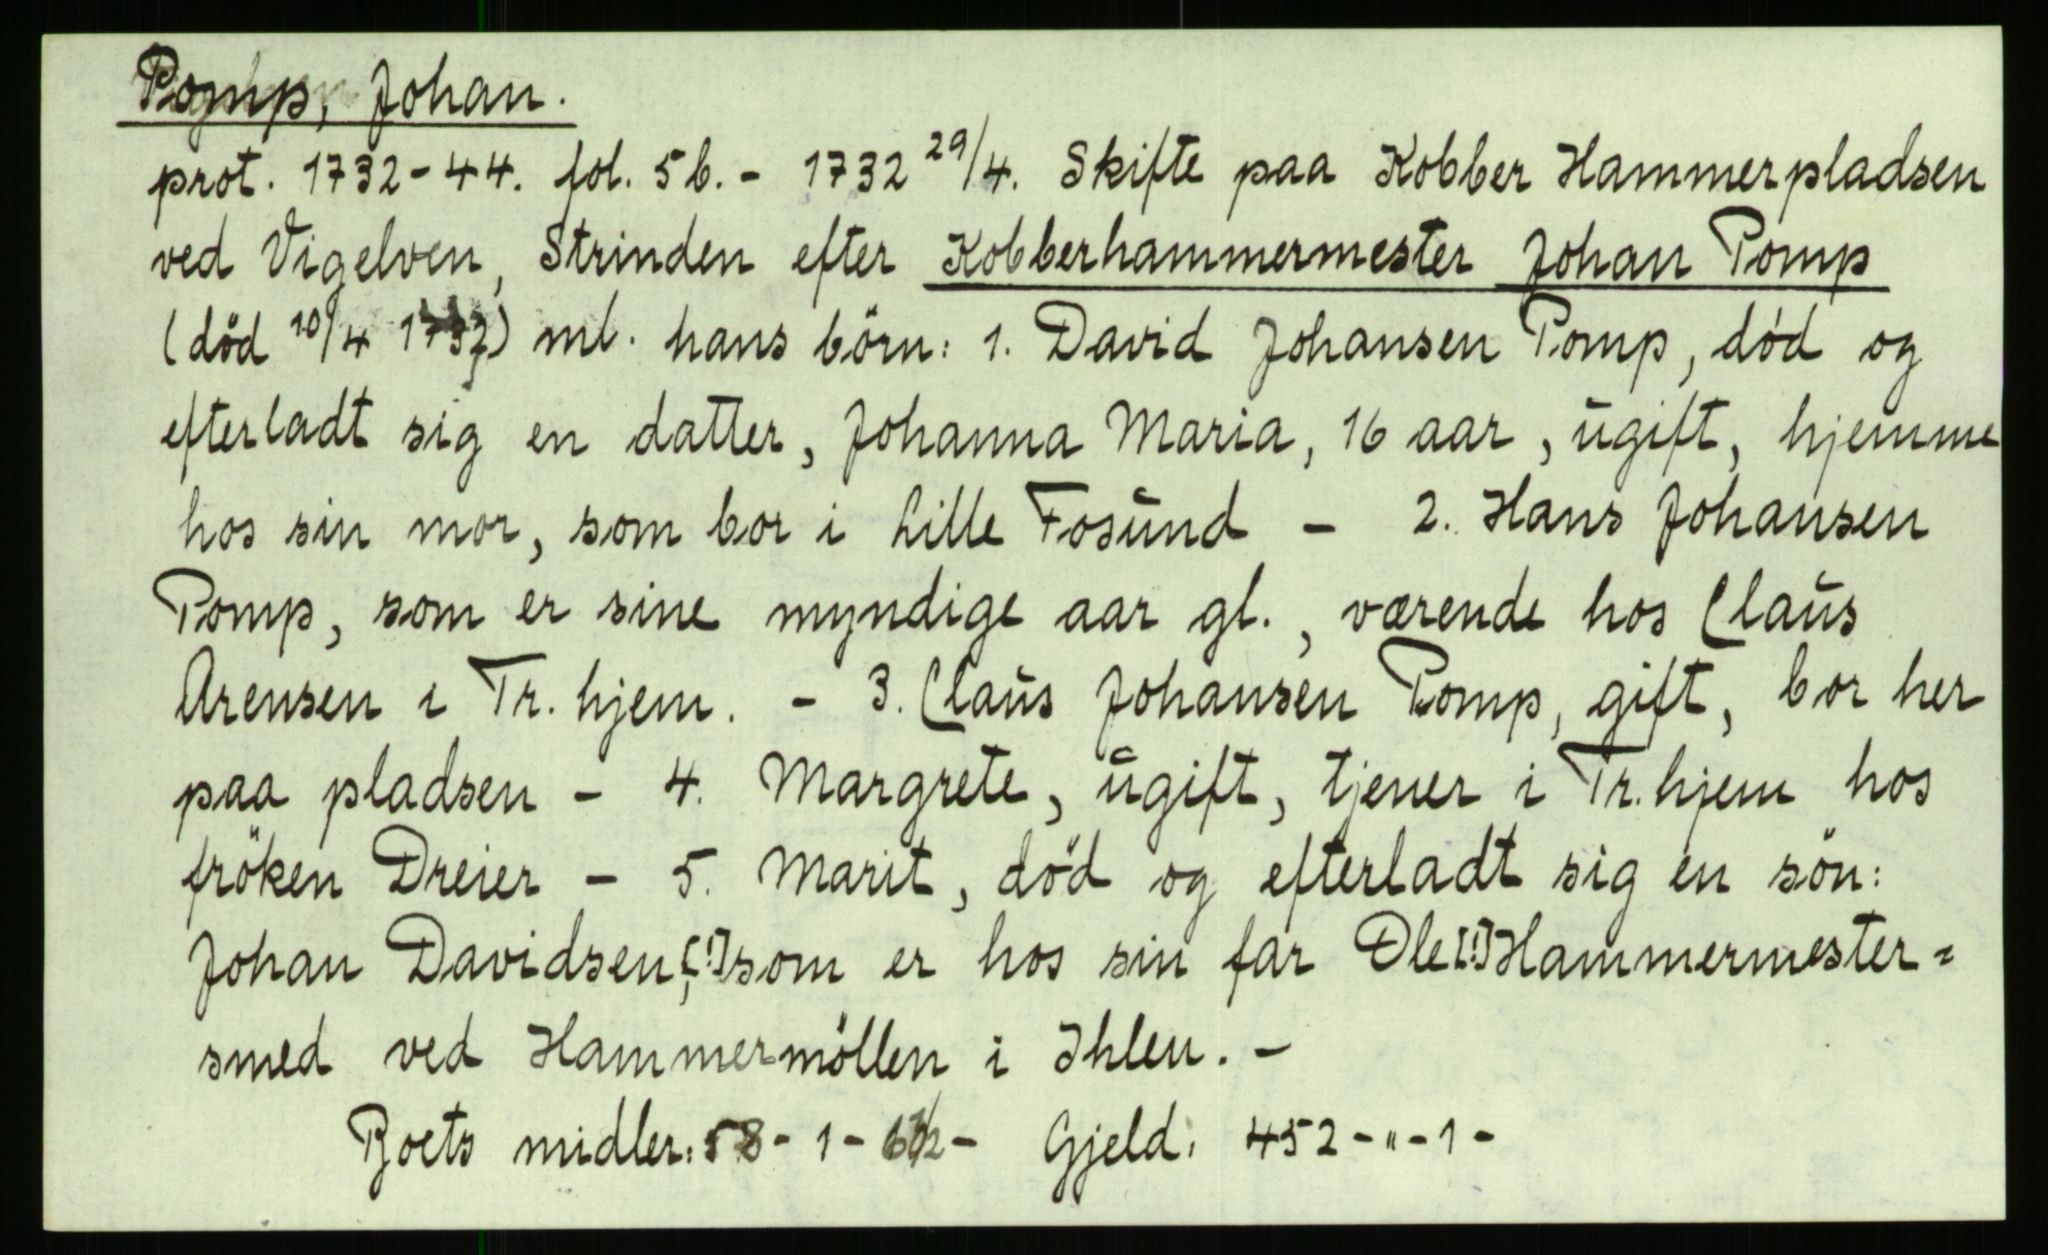 Pomp, Johan.
prot. 1732-44. fol. 5b. - 1732 29/4. Skifte paa Kobber Hammerpladsen
ved Vigelven, Strinden efter Kobberhammermester Johan Pomp
(död 10/4 1732) ml. hans börn: 1. David Johansen Pomp, död og
efterladt sig en datter, Johanna Maria, 16 aar, ugift, hjemme
hos sin mor, som bor i Lille Fosund - 2. Hans Johansen
Pomp, som er sine myndige aar gl., værende hos Claus
Arensen i Tr. hjem. - 3. Claus Johansen Pomp, gift, bor her
paa pladsen - 4. Margrete, ugift, tjener i Tr. hjem hos
fröken Dreier - 5. Marit, död og efterladt sig en sön:
Johan Davidsen,[!] som er hos sin far Ole[!] Hammermester=
smed ved Hammermöllen i Ihlen. -
Boets midler: 58 - 1 - - Gjeld: 452 - " - 1 -